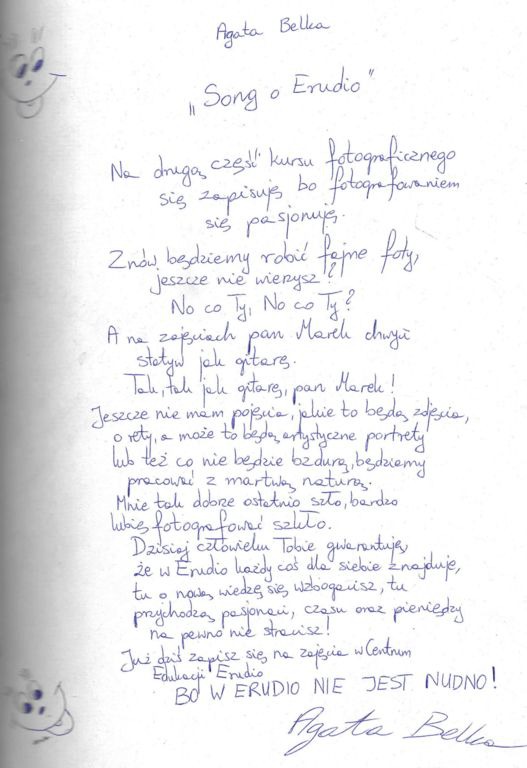 Agata Belka
„Song o Erudio"
Na drugą część kursu fotograficznego
się zapisuję bo fotografowaniem
się pasjonuję.
Znów będziemy robić fajne foty,
jeszcze nie wierzysz?
No co Ty, No co Ty?
A na zajęciach pan Marek chwyci
statyw jak gitarę.
Tak, tak jak gitarę, pan Marek!
Jeszcze nie mam pojęcia, jakie to będą zdjęcia,
o rety, a może to będą artystyczne portrety
lub też co nie będzie bzdurą, będziemy
pracować z martwą naturą.
Mnie tak dobrze ostatnio szło, bardzo
lubię fotografować szkło.
Dzisiaj człowieku Tobie gwarantuję,
że w Erudio każdy coś dla siebie znajduje,
tu o nową wiedzę się wzbogacisz, tu
przychodzą pasjonaci, czasu oraz pieniędzy
na pewno nie stracisz!
Już dziś zapisz się na zajęcia w Centrum
Edukacji Erudio
BO W ERUDIO NIE JEST NUDNO!
Agata Belka